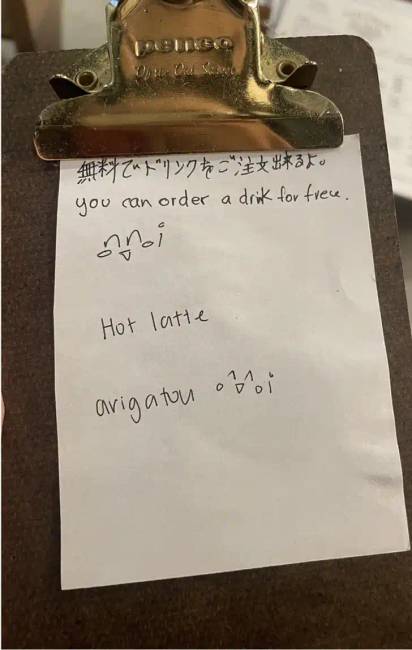 penco
無料でドリンクをご注文出来るよ。
you can order a drik for free.
Hot latte
arigatou